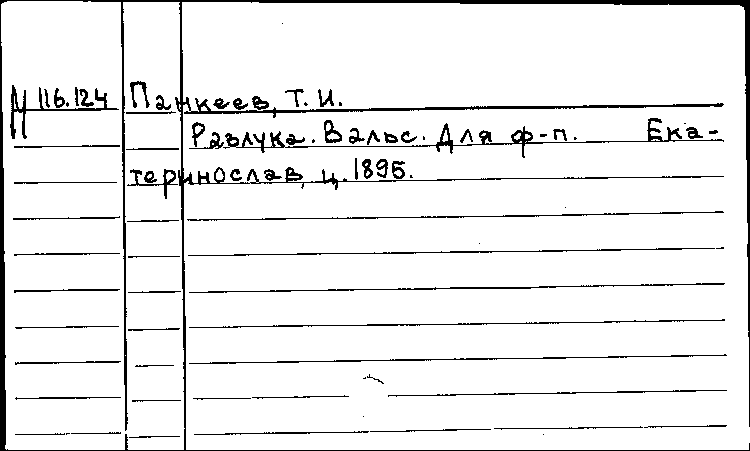 М 116.124 Панкеев, Т. И.
Разлука. Вальс. Для ф-п. Ека-
теринослав, ц. 1895.